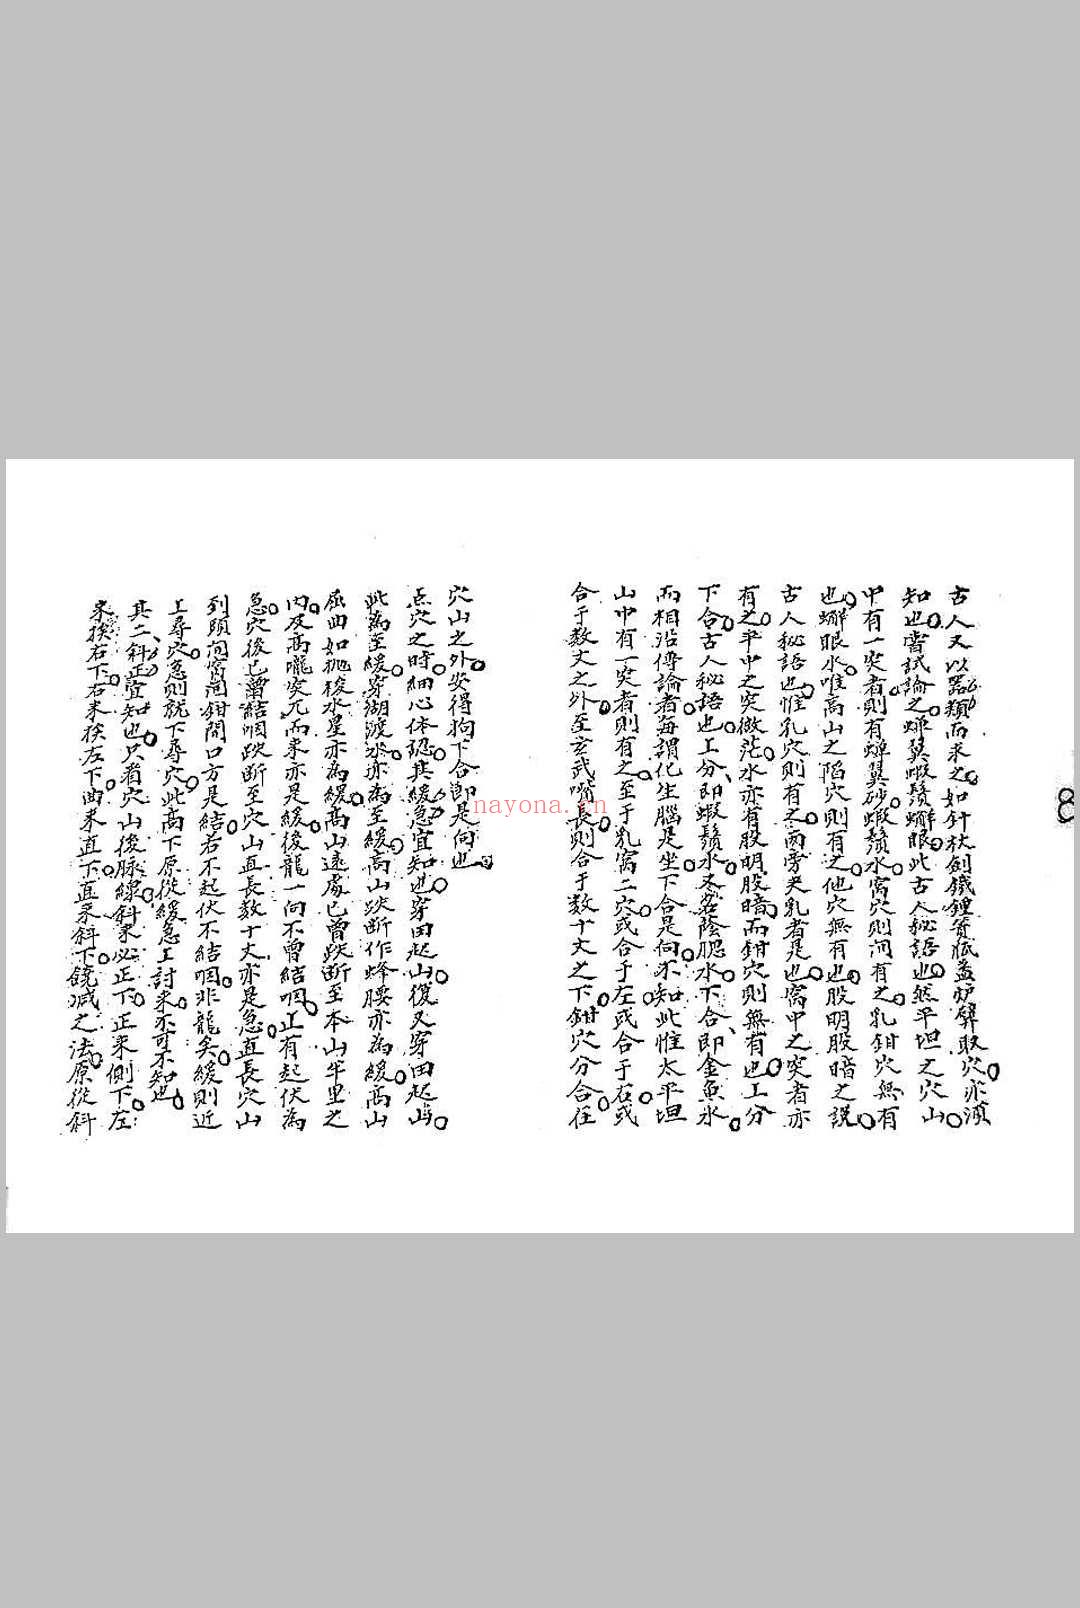 古人又以器類而求之如針杖劍鐵鍾聲底蓋炉穴亦須
知也嘗試論之蟬翼蝦鬚蠏眼此古人秘語也然平坦之穴山
中有一突者則有蟬翼砂蝦鬚水窩穴則间有之乳鉗穴無有
也蠏眼水唯高山之陷穴則有之他穴無有也股明股暗之説
古人秘語也惟乳穴則有之两旁夹乳者是也窩中之突者亦
有之平中之突微茫水亦有股明股暗而鉗穴則無有也上分
下合古人秘語也上分即蝦鬚水又名陰腮水下合即金魚水
而相沿傳論者每謂化生腦是坐下合是向不知此惟太平坦
山中有一突者則有之至于乳窩二穴或合于左或合于右或
合于数丈之外至玄武嘴長則合于数十丈之下鉗穴分合在
穴山之外安得拘下合即是向也
点穴之時細心体認其緩急宜知也穿田起山復又穿田起山
此為至緩穿湖渡水亦為至緩高山跌断作蜂腰亦為緩高山
屈曲如抛梭水星亦為緩高山遠處已曾跌断至本山半里之
内及高嚨突兀而来亦是緩後龍一向不曾結咽止有起伏為
急穴後已曾結咽跌断至穴山直長数十丈亦是急直長穴山
到頭间窩间鉗開口方是結若不起伏不結咽非龍矣緩則近
上尋穴急則就下尋穴此高下原從緩急上討来不可不知也
其二斜正宜知也只看穴山後脉線斜来必正下正来側下左
来挨右下右来挨左下曲来直下直来斜下饒减之法原從斜
8
nayona.cn